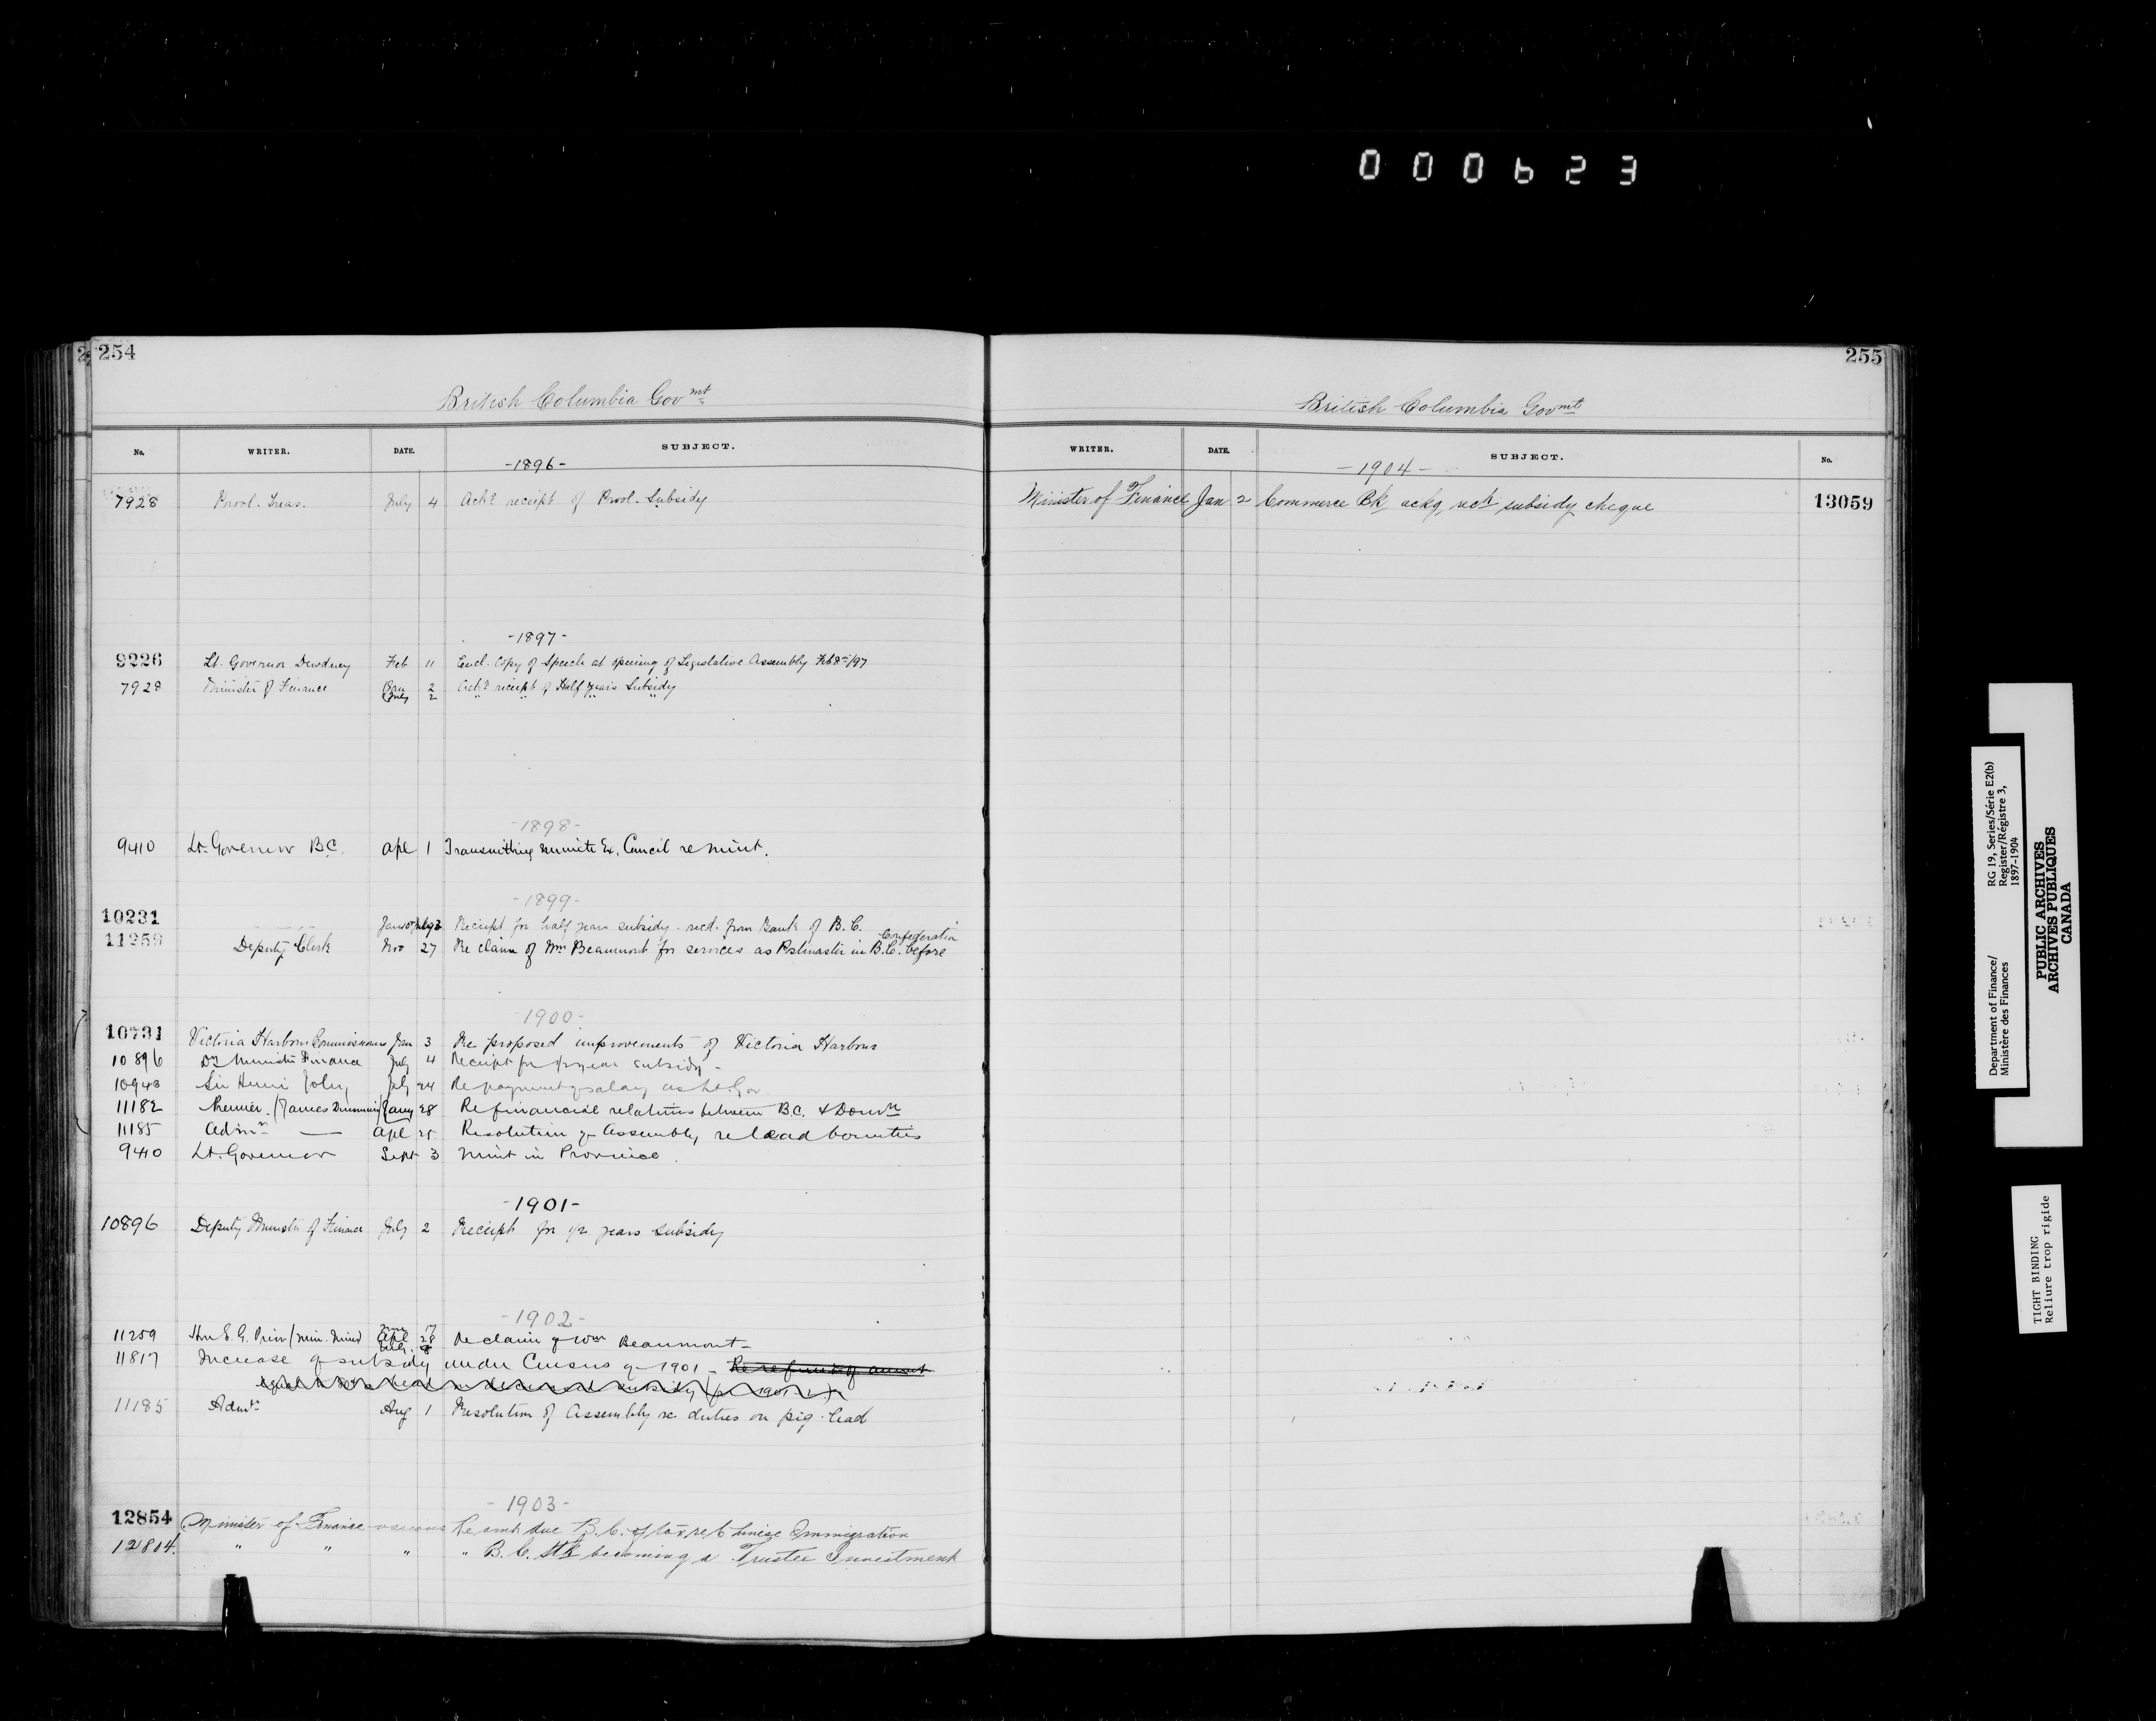 000623
254
British Columbia Govmt
No. WRITER. DATE. SUBJECT.
-1896-
7928 Provl. Treas. July 4 Ackg receipt of Provl. Subsidy
-1897-
9226 Lt. Governor Dewdney Feb 11 Encl. Copy of Speech at opening of Legislative Assembly Feb 8th/97
7928 Minister of Finance Jan 2 Ackg receipt of Half years Subsidy
July 2 " " " "
-1898-
9410 Lt. Governor B.C. Apl 1 Transmitting minute Ex. Council re mint.
-1899-
10231 Receipt for half year subsidy recd. from Bank of B.C.
11259 Deputy Clerk Nov 27 Re claim of Wm Beaumont for services as Postmaster in B.C. before Confederation
1900-
10731 Victoria Harbour Commissioners Jan 3 Re proposed improvements of Victoria Harbour
10896 Dy Minister Finance July 4 Receipt for ½ year subsidy -
10943 Sir Henri Joly, July 24 Re payment of salary as Lt. Gov
11182 Premier (James Dunsmuir) Jany 28 Re financial relations between B.C. & Domn
11185 Admr — Apl 25 Resolution of Assembly re lead bounties
9410 Lt. Governor Sept 3 Mint in Province
-1901-
10896 Deputy Minister of Finance July 2 Receipt for 1/2 years subsidy
-1902-
11259 Hon E. G. Prior (Min. Mines) Apl 28 Re claim of Wm Beaumont -
11817 Increase of subsidy under Census of 1901 - Re refusing of amount
11185 Admr Aug 1 Resolution of Assembly re duties on pig-lead
-1903-
12854 Minister of Finance various Re amt due B.C. of tax re Chinese Immigration
12804. " " " " B.C. Stk becoming a Trustee Investment
255
British Columbia Govmt
WRITER. DATE. SUBJECT. No.
-1904-
Minister of Finance Jan 2 Commerce Bk ackg rect subsidy cheque 13059
Department of Finance/ RG 19, Series/Série E2(b)
Ministère des Finances Register/Régistre 3,
1897-1904
PUBLIC ARCHIVES
ARCHIVES PUBLIQUES
CANADA
TIGHT BINDING
Reliure trop rigide